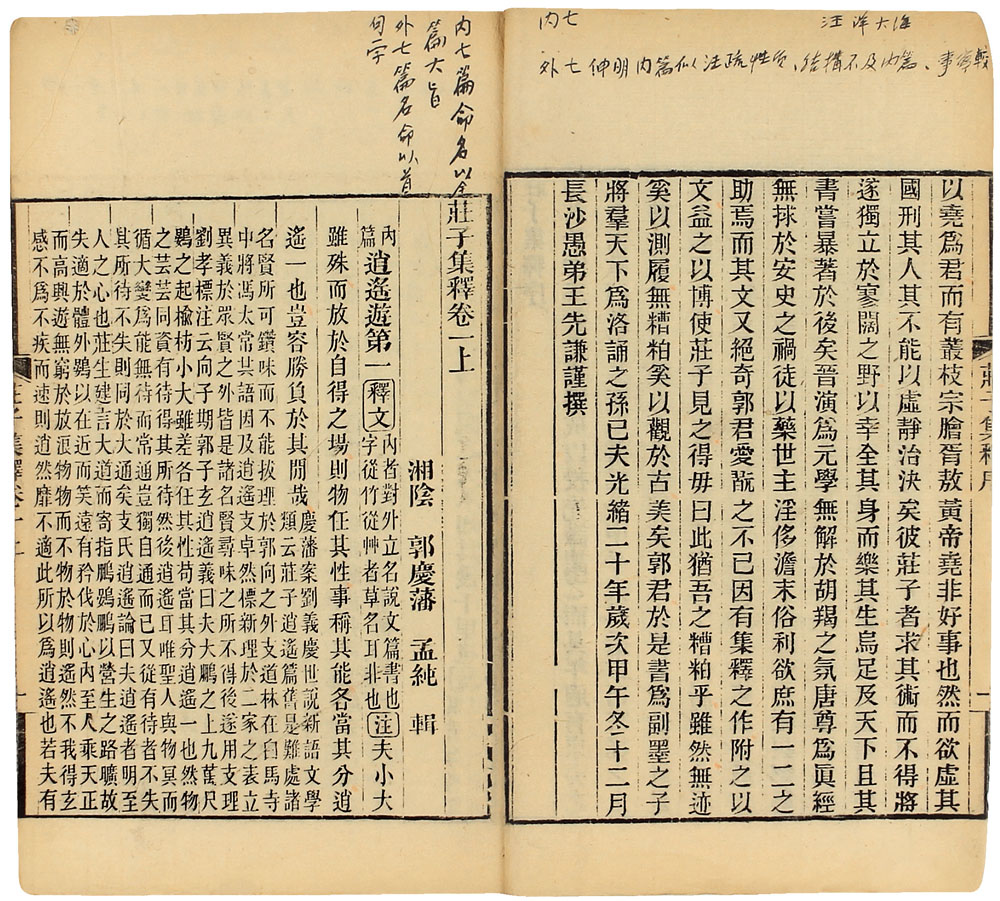 內七
汪洋大海
外七伸明內篇似注疏性质、結構不及內篇、事
以堯爲君而有叢枝宗膾胥敖黃帝堯非好事也然而欲虛其
國刑其人其不能以虛靜治決矣彼莊子者求其術而不得將
遂獨立於寥闊之野以幸全其身而樂其生烏足及天下且其
書嘗暴著於後矣晉演爲元學無解於胡羯之氛唐尊爲眞經
無捄於安史之禍徒以藥世主淫侈澹末俗利欲庶有一二之
助焉而其文又絕奇郭君愛翫之不已因有集釋之作附之以
文益之以博使莊子見之得毋曰此猶吾之糟粕乎雖然無迹
奚以測履無糟粕奚以觀於古美矣郭君於是書爲副墨之子
將羣天下爲洛誦之孫已夫光緒二十年歲次甲午冬十二月
長沙愚弟王先謙謹撰
莊子集釋序
內七篇命名以全
篇大旨
外七篇名命以首
句字
莊子集釋卷一上
湘陰 郭慶藩 孟純 輯
內篇 逍遙遊第一 釋文 內者對外立名說文篇書也字從竹從艸者草名耳非也 注 夫小大
雖殊而放於自得之場則物任其性事稱其能各當其分逍
遙一也豈容勝負於其閒哉 慶藩案劉義慶世說新語文學類云莊子逍遙篇舊是難處諸
名賢所可鑽味而不能拔理於郭向之外支道林在白馬寺
中將馮太常共語因及逍遙支卓然標新理於二家之表立
異義於眾賢之外皆是諸名賢尋味之所不得後遂用支理
劉孝標注云向子期郭子玄逍遙義曰夫大鵬之上九萬尺
鷃之起榆枋小大雖差各任其性苟當其分逍遙一也然物
之芸芸同資有待得其所待然後逍遙耳唯聖人與物冥而
循大變爲能無待而常通豈獨自通而已又從有待者不失
其所待不失則同於大通矣支氏逍遙論曰夫逍遙者明至
人之心也莊生建言大道而寄指鵬鷃鵬以營生之路曠故
失適於體外鷃以在近而笑遠有矜伐於心內至人乘天正
而高興遊無窮於放浪物物而不物於物則遙然不我得玄
感不爲不疾而速則逍然靡不適此所以爲逍遙也若夫有
莊子集釋卷一上
一